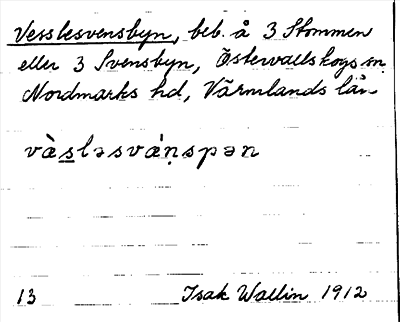 Vesslesvensbyn, beb. å 3 Stommen
eller 3 Svensbyn, Östervallskogs sn
Nordmarks hd, Värmlands län
væ̀s̲ləsvá̀ṇspən
13 Isak Wallin 1912